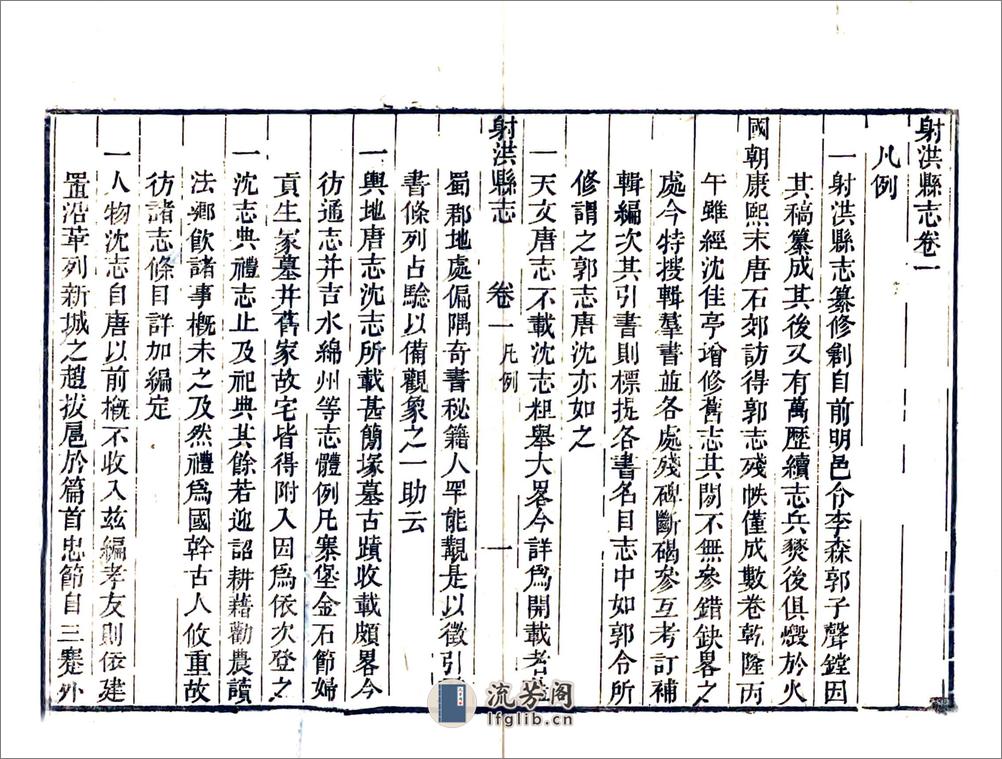 射洪縣志卷一
凡例
一射洪縣志纂修創自前明邑令李森郭子聲鏜因
其稿纂成其後又有萬歷續志兵燹後俱燬於火
國朝康熙末唐石郊訪得郭志殘帙僅成數卷乾隆丙
午雖經沈佳亭增修舊志其閒不無參錯缺畧之
處今特搜輯羣書並各處殘碑斷碣參互考訂補
輯編次其引書則標提各書名目志中如郭令所
修謂之郭志唐沈亦如之
一天文唐志不載沈志粗舉大畧今詳爲開載者
射洪縣志 卷一 凡例 一
蜀郡地處偏隅奇書秘籍人罕能覯是以徵引
書條列占驗以備觀象之一助云
一輿地唐志沈志所載甚簡塚墓古蹟收載頗畧今
彷通志并吉水綿州等志體例凡寨堡金石節婦
貢生冢墓并舊家故宅皆得附入因爲依次登之
一沈志典禮志止及祀典其餘若迎詔耕藉勸農讀
法鄉飲諸事槪未之及然禮爲國幹古人攸重故
彷諸志條目詳加編定
一人物沈志自唐以前槪不收入茲編孝友則依建
置沿革列新城之趙拔扈於篇首忠節自三蹇外
流芳阁
lfglib.cn